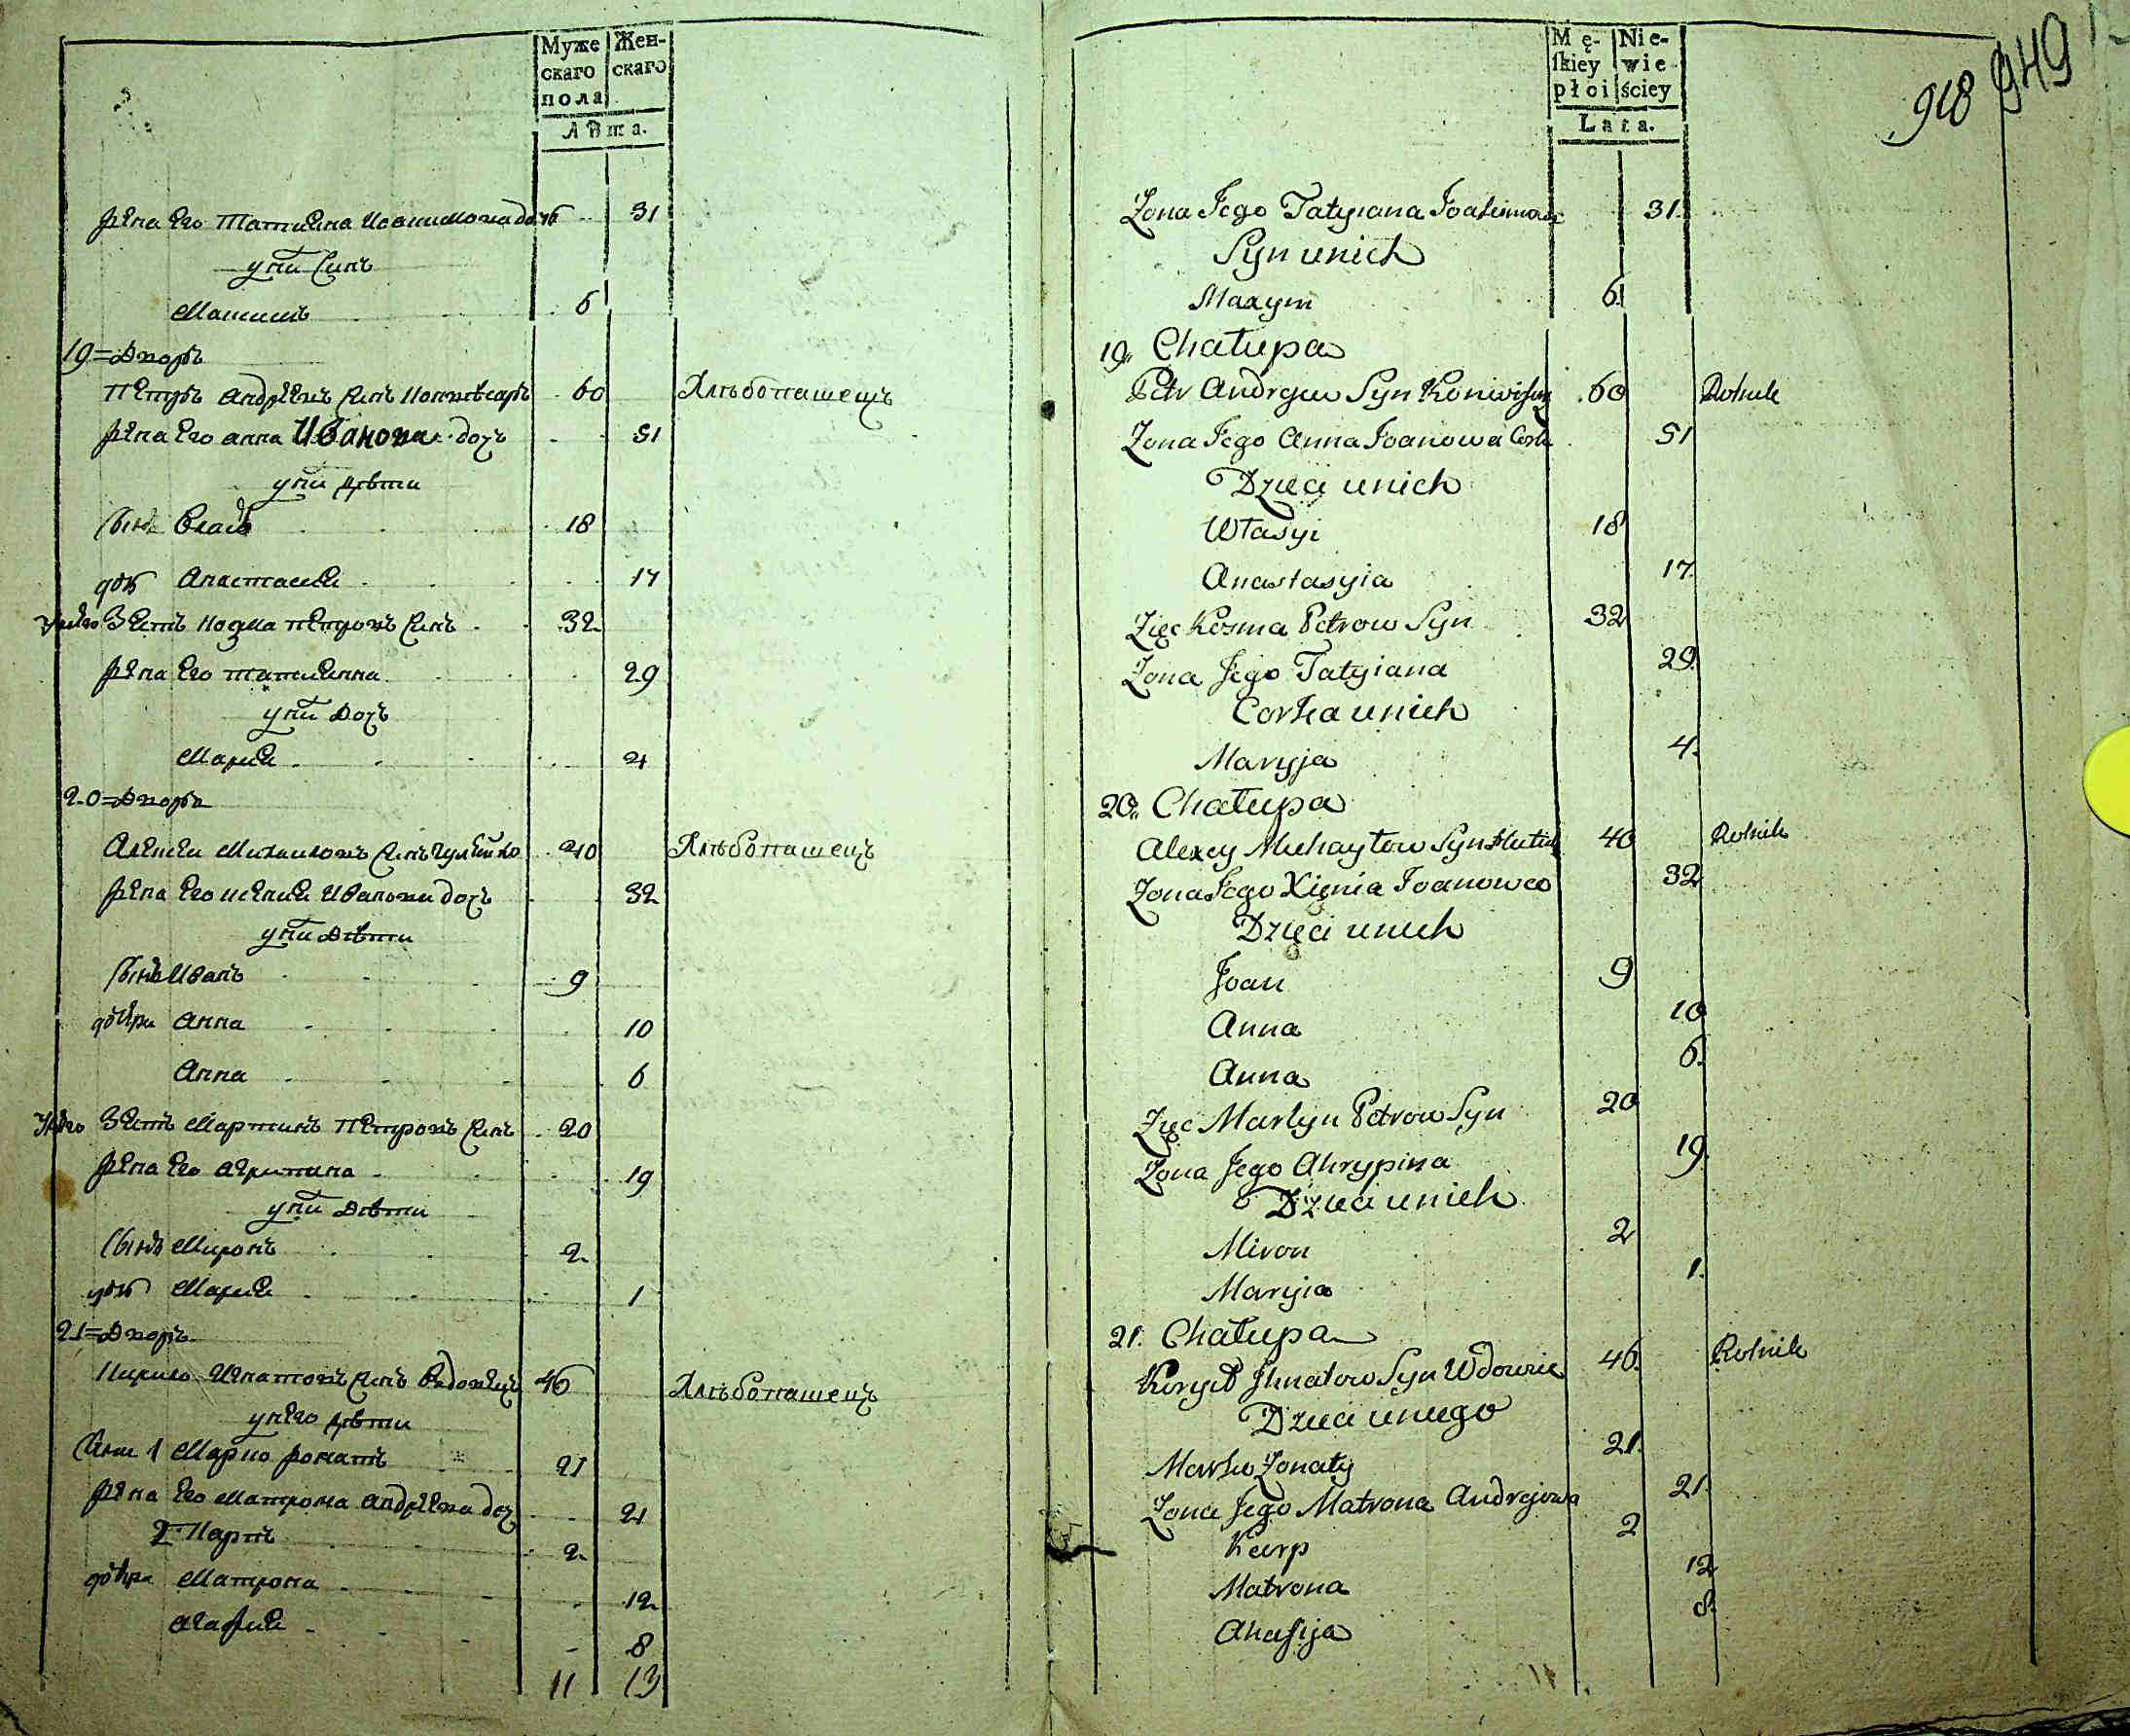 Муже Жен-
скаго скаго
пола
Лѣта.
жена его Татиена Иоакимова дочь 31
у них Синъ
Макимъ 6
19=Дворъ
Петръ Андреевъ синъ 60 Хлѣбопашецъ
жена его Анна Иванова дочь 51
у них дѣти
синъ Власъ 18
дочь Анастасия 17
у него Зять Козма Петровъ синъ 32
жена его Татиенна 29
у них дочь
Мария 4
20=Дворъ
Алексей Михаиловъ синъ 40 Хлѣбопашецъ
жена его Ксения Иванова дочь 32
у них Дѣти
синъ Иванъ 9
дочери Анна 10
Анна 6
у него Зять Мартинъ Петровъ синъ 20
жена его Агрипина 19
у них Дѣти
синъ Миронъ 2
дочь Мария 1
21=Дворъ
Кирило Игнатовъ синъ Вдовецъ 46 Хлѣбопашецъ
у него дѣти
сини 1 Марко женатъ 21
жена его Матрона Андреева доч 21
2 Карпъ 2
дочери Матрона 12
Агафия 8
11 13
918 949
Mę- Nie-
ſkiey wie
płci ściey
Lata.
Żona Jego Tatyiana Joakimowa 31.
Syn unich
Maxym 6
19. Chałupa
Petr Andrzeu Syn 60 Rolnik
Żona Jego Anna Joanowa Corka 51
Dzieci unich
Własyi 18
Anastasyia 17.
Zięc Kosma Petrow Syn 32
Żona Jego Tatyiana 29.
Corka unich
Maryja 4.
20. Chałupa
Alexey Michayłow Syn 40 Rolnik
Żona Jego Xienia Joanowa 32
Dzieci unich
Joan 9
Anna 10
Anna 6.
Zięc Martyn Petrow Syn 20
Żona Jego Ahrypina 19.
Dzieci unich
Miron 2
Maryia 1.
21. Chałupa
Kirył Ihnatow Syn Wdowiec 46. Rolnik
Dzieci unieego
Marko Żonaty 21.
Żona Jego Matrona Andrejowa 21.
Karp 2
Matrona 12
Ahafija 8.